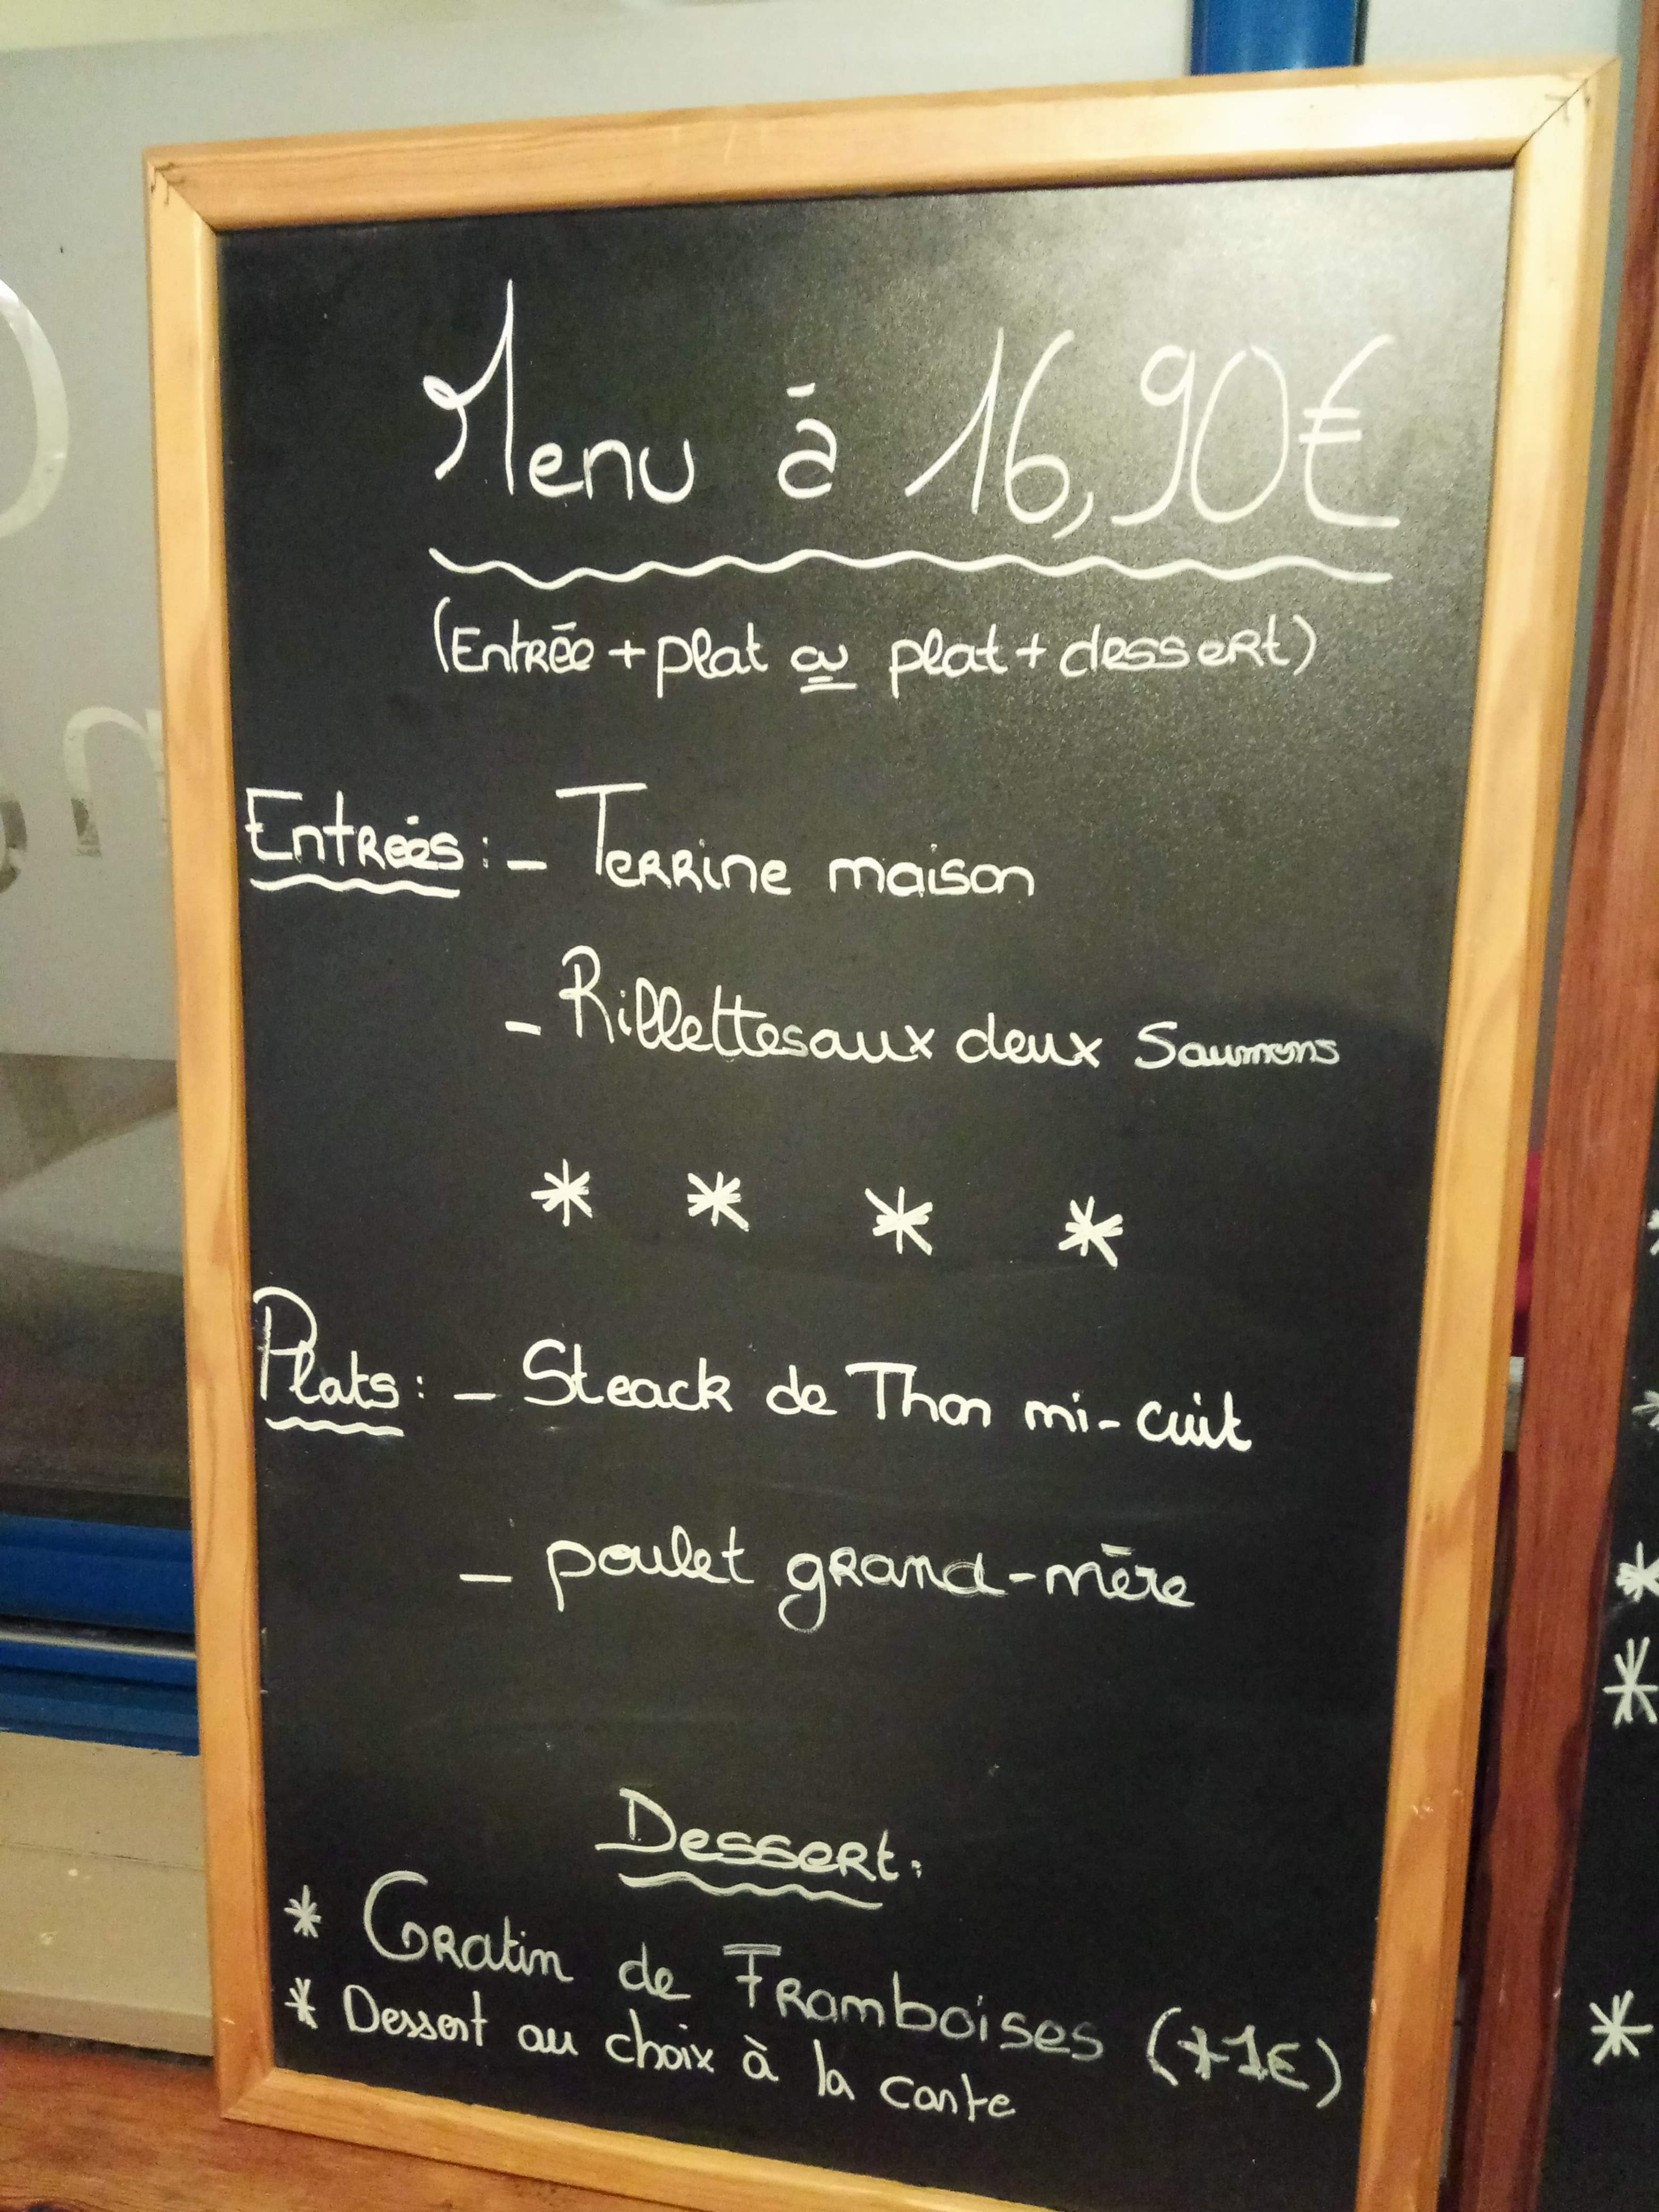 Menu à 16,90€
(Entrée + plat ou plat + dessert)
Entrées : - Terrine maison
- Rillettes aux deux Saumons
* * * *
Plats : - Steack de Thon mi-cuit
- poulet grand-mère
Dessert :
* Gratin de Framboises (+1€)
* Dessert au choix à la carte